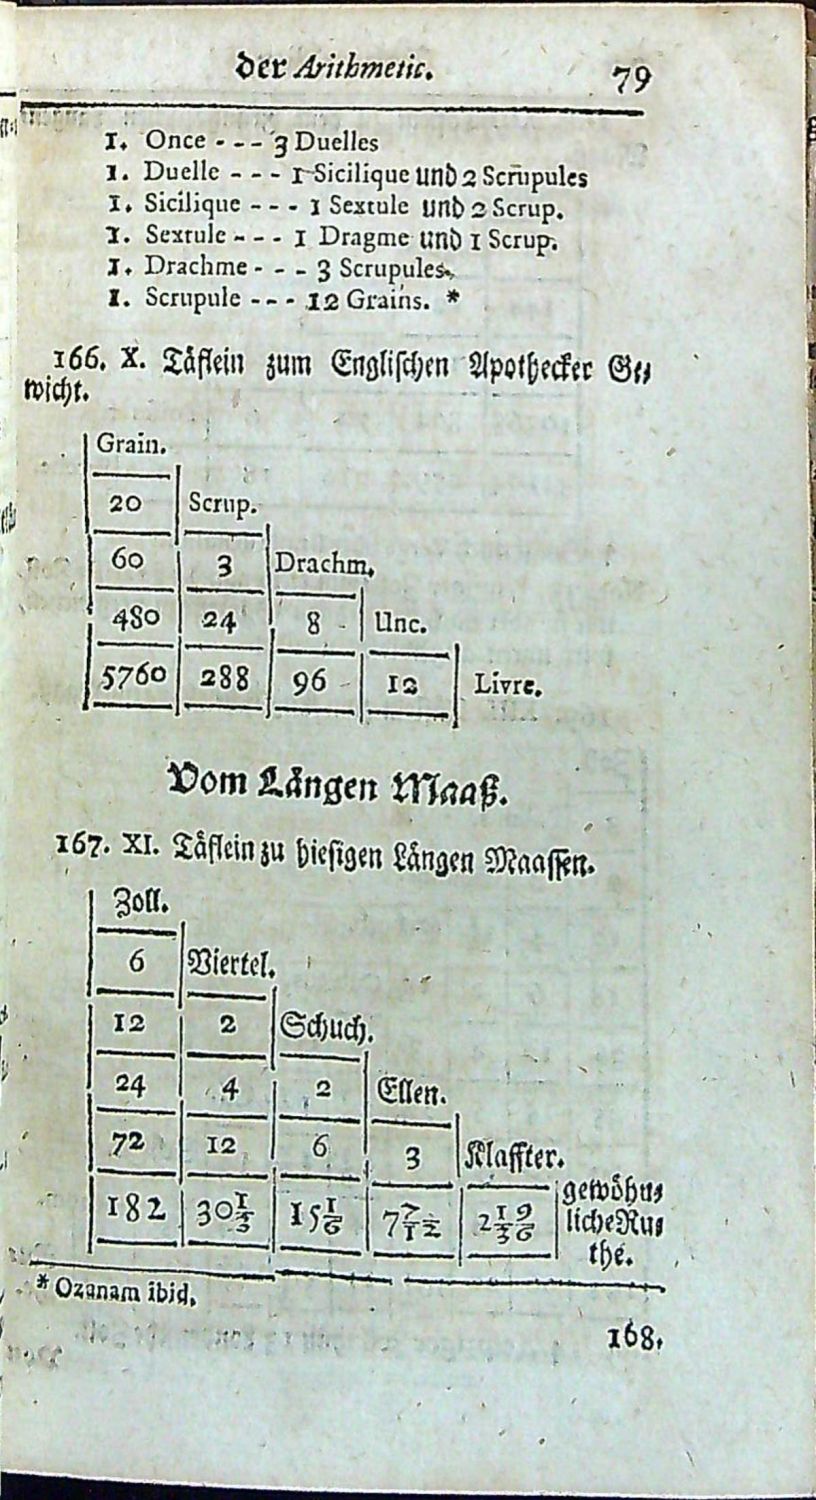 der Arithmetic. 79
1. Once - - - 3 Duelles
1. Duelle - - - 1 Sicilique und 2 Scrupules
1. Sicilique - - - 1 Sextule und 2 Scrup.
1. Sextule - - - 1 Dragme und 1 Scrup.
1. Drachme - - - 3 Scrupules.
1. Scrupule - - - 12 Grains. *
166. X. Täflein zum Englischen Apothecker Ge-
wicht.
Grain.
20 Scrup.
60 3 Drachm.
480 24 8 Unc.
5760 288 96 12 Livre.
Vom Längen Maaß.
167. XI. Täflein zu hiesigen Längen Maassen.
Zoll.
6 Viertel.
12 2 Schuch.
24 4 2 Ellen.
72 12 6 3 Klaffter.
182 30 1/3 15 1/6 7 7/12 2 19/36 gewöhn-
liche Ru-
the.
* Ozanam ibid.
168.